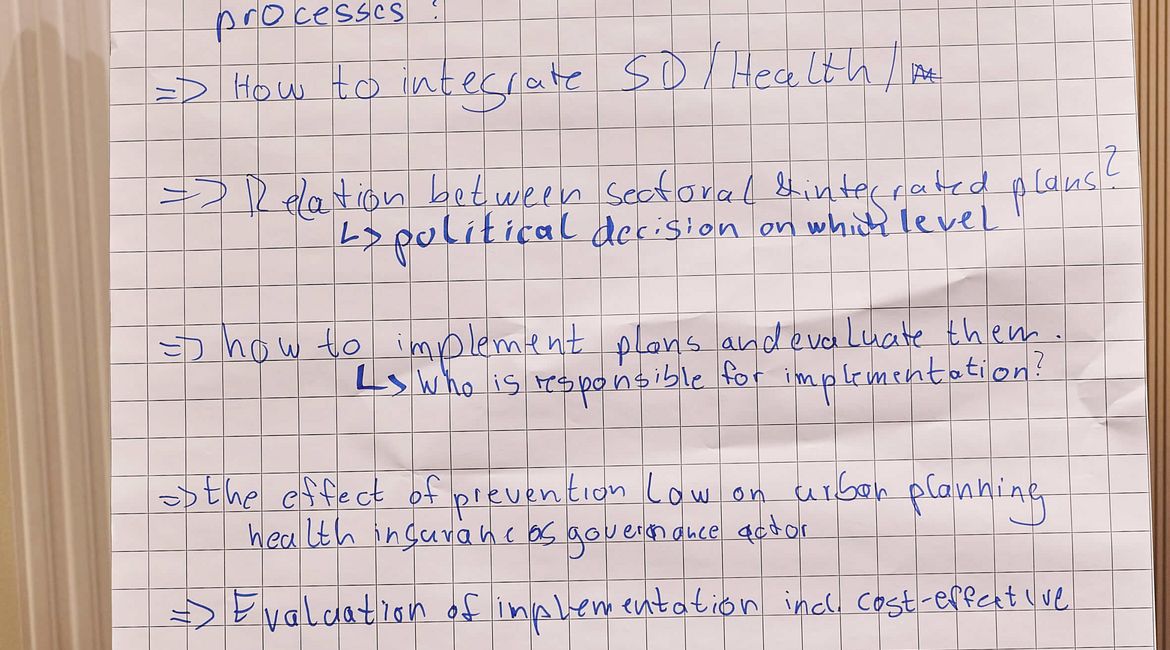 processes?
=> How to integrate SD/Health/
=> Relation between sectoral & integrated plans?
↳ political decision on which level
=> how to implement plans and evaluate them.
↳ who is responsible for implementation?
=> the effect of prevention law on urban planning
health insuranc as governance actor
=> Evaluation of implementation incl. cost-effective